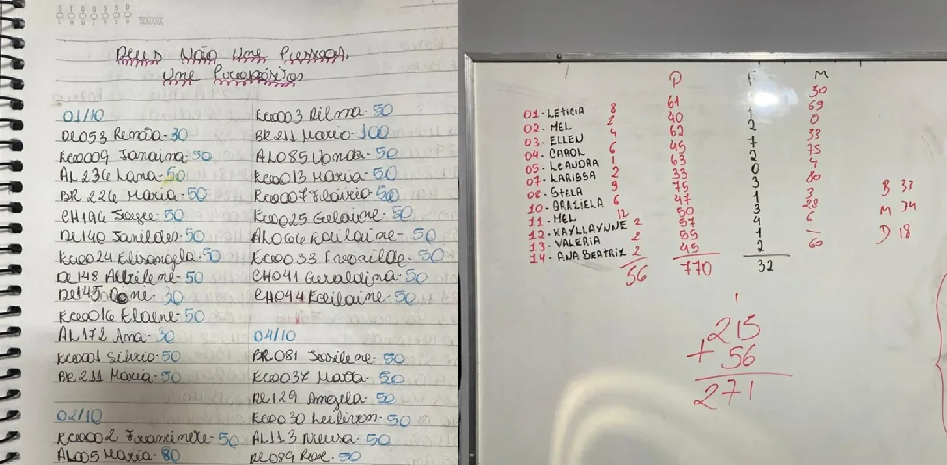 Deus Não Une Pessoas,
Une Propósitos
01/10
DL053 Renata-30
KC0009 Janaina-50
AL236 Lana-50
BR 226 Maria-50
CH196 Joyce-50
DL140 Janildes-50
KC0024 Elisangela-50
DL148 Albilene-50
DL145 30
KC0016 Elaene-50
AL172 Ana-30
KC0001 Silvio-50
BR 211 Maria-50
02/10
KC0002 Francinete-50
AL005 Maria-80
KC0003 Dilma-50
BR 211 Mario-100
AL085 Vanda-50
KC0013 Maria-50
KC0007 Flavio-50
KC0025 Gelaine-50
AL066 Kedilaine-50
KC0033 Inorilde-50
CH041 Geraldina-50
CH044 Kedilaine-50
04/10
BR081 Josilene-50
KC0037 Matta-50
DL129 Angela-50
KC0030 50
AL113 Neusa-50
DL089 Rose-50
P M
01-LETICIA 8 61 30
02-MEL 2 40 1 69
03-ELLEN 4 62 2 0
04-CAROL 6 45 7 38
05-LEANDRA 1 63 2 75
07-LARISSA 2 33 0 4
08-STELA 9 75 3 80
10-GRAZIELA 6 47 1 3
11-MEL 12 50 3 28
12-KAYLLAYNNE 2 57 4 6
13-VALERIA 2 55 1 -
14-ANA BEATRIX 2 45 2 60
56 770 32
B 33
M 34
D 18
1
215
+ 56
271